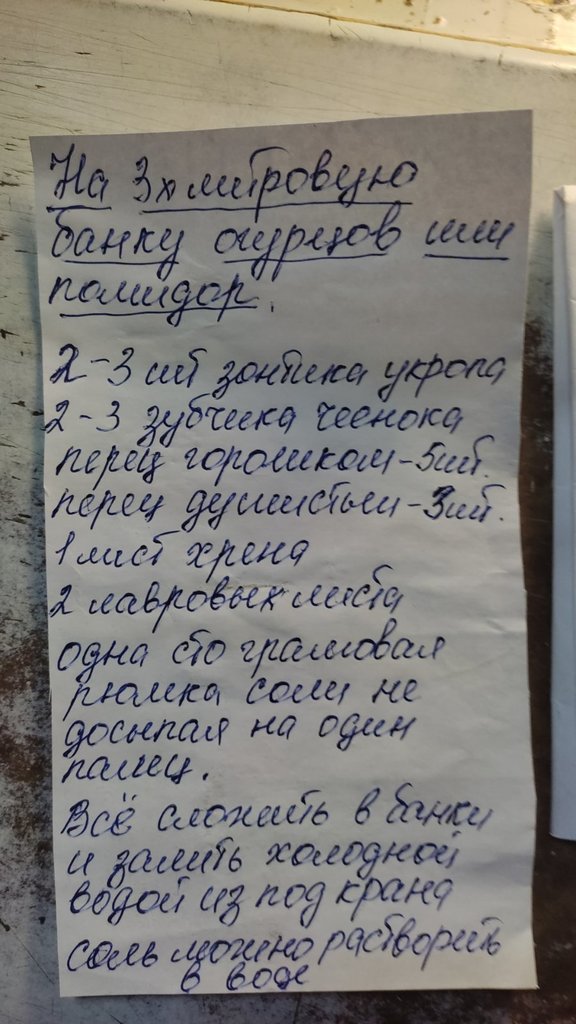 На 3х литровую
банку огурцов или
помидор.
2-3 шт зонтика укропа
2-3 зубчика чеснока
перец горошком-5шт.
перец душистый-3шт.
1 лист хрена
2 лавровых листа
одна сто граммовая
рюмка соли не
досыпая на один
палец.
Всё сложить в банки
и залить холодной
водой из под крана
соль можно растворить
в воде